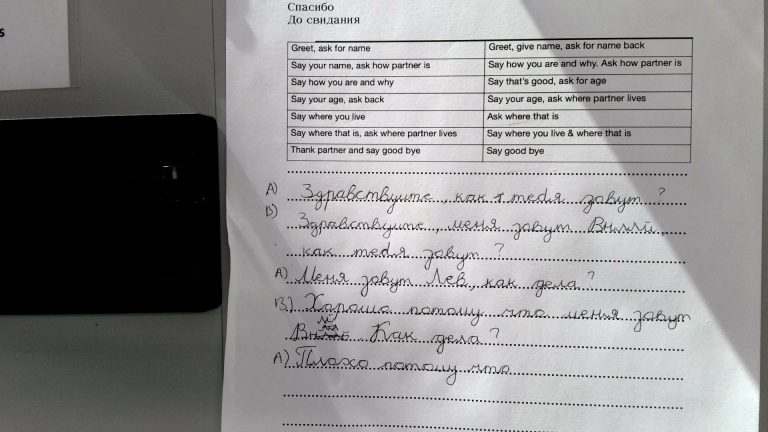 s
Спасибо
До свидания
Greet, ask for name Greet, give name, ask for name back
Say your name, ask how partner is Say how you are and why. Ask how partner is
Say how you are and why Say that's good, ask for age
Say your age, ask back Say your age, ask where partner lives
Say where you live Ask where that is
Say where that is, ask where partner lives Say where you live & where that is
Thank partner and say good bye Say good bye
А) Здравствуите, как тебя зовут?
В) Здравствуите, меня зовут
как тебя зовут?
А) Меня зовут Лев, как дела?
В) Хорошо потому что меня зовут
Как дела?
А) Плохо потому что